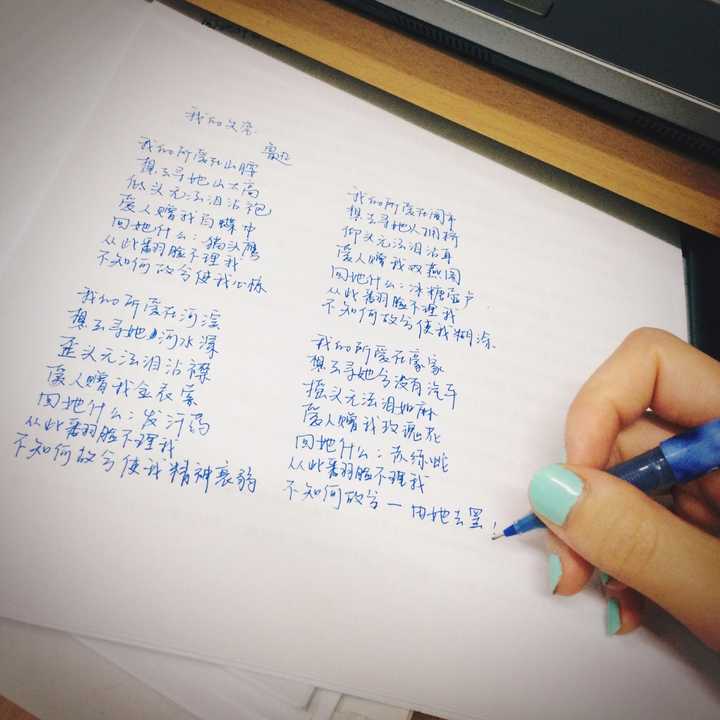 我的失恋
鲁迅
我的所爱在山腰
想去寻她山太高
低头无法泪沾袍
爱人赠我百蝶巾
回她什么：猫头鹰
从此翻脸不理我
不知何故兮使我心惊
我的所爱在闹市
想去寻她人拥挤
仰头无法泪沾耳
爱人赠我双燕图
回她什么：冰糖壶卢
从此翻脸不理我
不知何故兮使我糊涂
我的所爱在河滨
想去寻她河水深
歪头无法泪沾襟
爱人赠我金表索
回她什么：发汗药
从此翻脸不理我
不知何故兮使我精神衰弱
我的所爱在豪家
想去寻她兮没有汽车
摇头无法泪如麻
爱人赠我玫瑰花
回她什么：赤练蛇
从此翻脸不理我
不知何故兮一由她去罢！